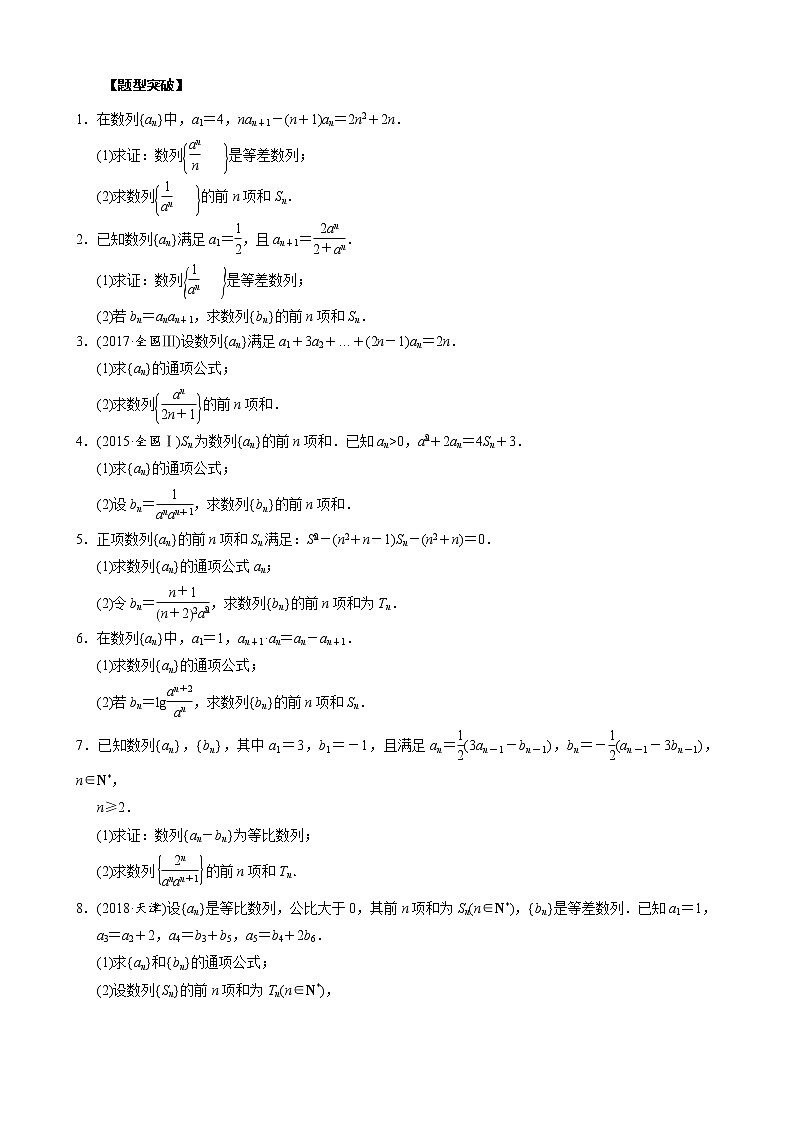 【题型突破】
1．在数列{an}中，a1＝4，nan＋1－(n＋1)an＝2n2＋2n.
(1)求证：数列{an/n}是等差数列；
(2)求数列{1/an}的前n项和Sn.
2．已知数列{an}满足a1＝1/2，且an＋1＝2an/(2＋an).
(1)求证：数列{1/an}是等差数列；
(2)若bn＝anan＋1，求数列{bn}的前n项和Sn.
3．(2017·全国Ⅲ)设数列{an}满足a1＋3a2＋…＋(2n－1)an＝2n.
(1)求{an}的通项公式；
(2)求数列{an/(2n＋1)}的前n项和．
4．(2015·全国Ⅰ)Sn为数列{an}的前n项和．已知an>0，a2n＋2an＝4Sn＋3.
(1)求{an}的通项公式；
(2)设bn＝1/(anan＋1)，求数列{bn}的前n项和．
5．正项数列{an}的前n项和Sn满足：S2n－(n2＋n－1)Sn－(n2＋n)＝0.
(1)求数列{an}的通项公式an；
(2)令bn＝(n＋1)/((n＋2)2a2n)，求数列{bn}的前n项和为Tn.
6．在数列{an}中，a1＝1，an＋1·an＝an－an＋1.
(1)求数列{an}的通项公式；
(2)若bn＝lg an＋2/an，求数列{bn}的前n项和Sn.
7．已知数列{an}，{bn}，其中a1＝3，b1＝－1，且满足an＝1/2(3an－1－bn－1)，bn＝－1/2(an－1－3bn－1)，
n∈N*，
n≥2.
(1)求证：数列{an－bn}为等比数列；
(2)求数列{2n/(anan＋1)}的前n项和Tn.
8．(2018·天津)设{an}是等比数列，公比大于0，其前n项和为Sn(n∈N*)，{bn}是等差数列．已知a1＝1，
a3＝a2＋2，a4＝b3＋b5，a5＝b4＋2b6.
(1)求{an}和{bn}的通项公式；
(2)设数列{Sn}的前n项和为Tn(n∈N*)，